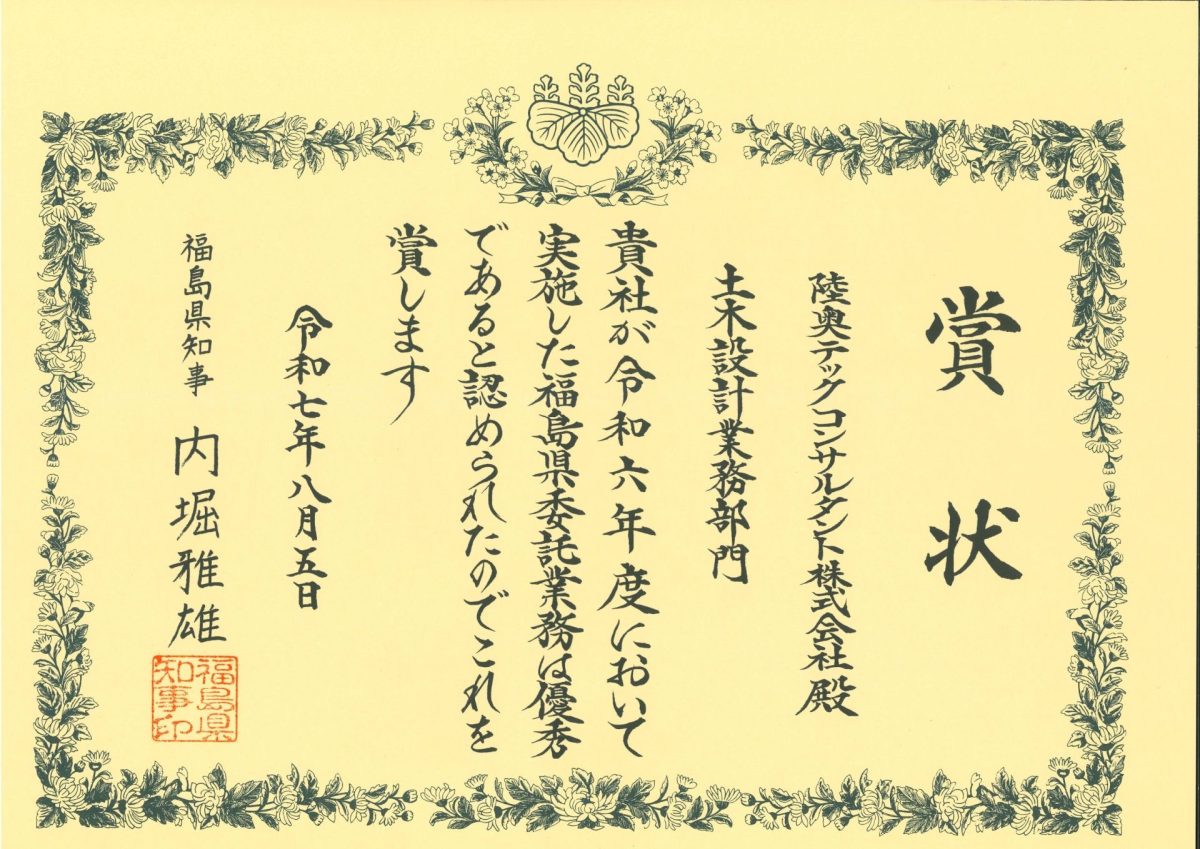 賞状
陸奥テックコンサルタント株式会社殿
土木設計業務部門
貴社が令和六年度において
実施した福島県委託業務は優秀
であると認められたのでこれを
賞します
令和七年八月五日
福島県知事 内堀雅雄
福島県
知事印